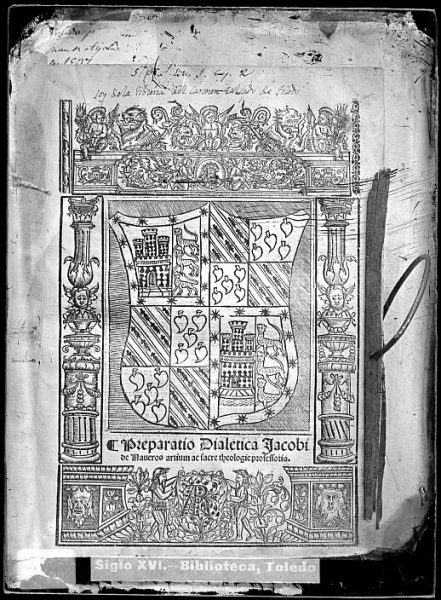 Juan de
en 1537
S
soy de la libreria del Carmen Calzado de Toledo
¶ Preparatio Dialetica Jacobi
de Naueros artium ac sacre theologie professoris.
Siglo XVI.—Biblioteca, Toledo